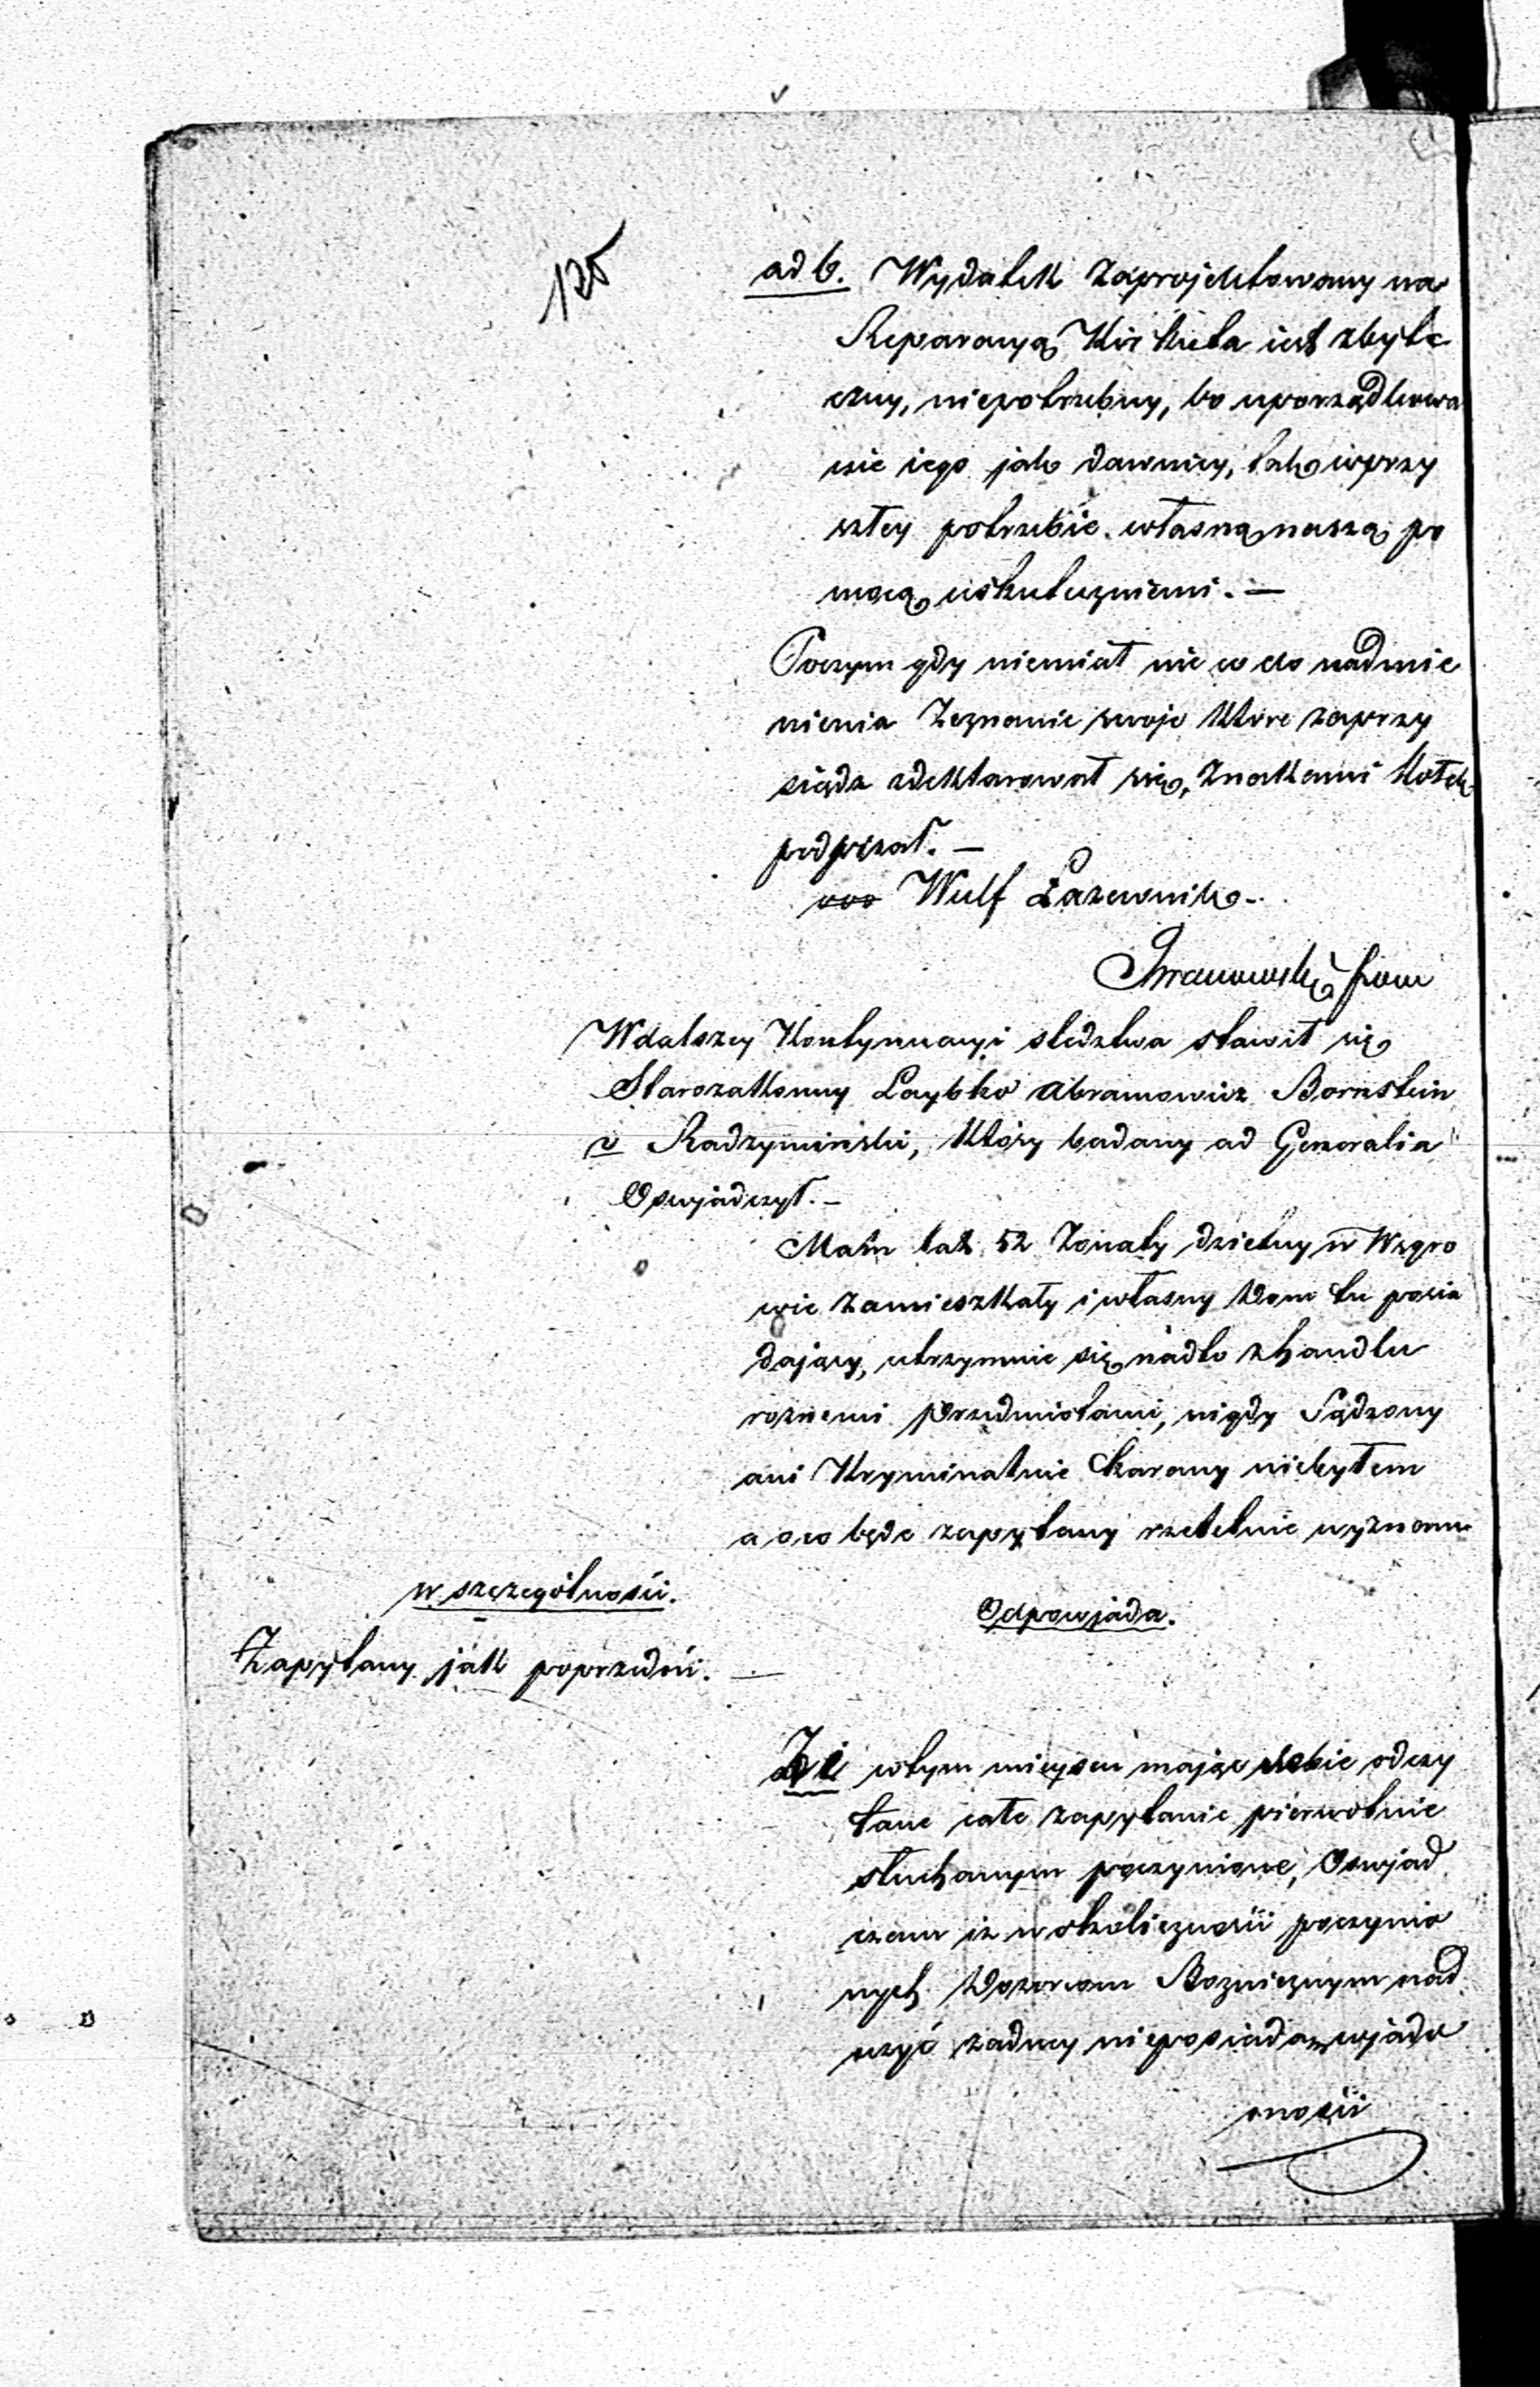 125
ad 6. Wydatek zaprojektowany na
Reparacyą Kirkuta iest zbyte
czny, niepotrzebny, bo uporządkowa
nie iego jak dawniey, tak i w przy
szłey potrzebie własną naszą po
mocą uskuteczniemi. —
Poczym gdy niemiał nic co do nadmie
nienia Zeznanie swoje które zaprzy
siądz zdeklarował się, Znakami Kołek
podpisał. —
ooo Wulf Łazewnik.
Wdalszey Kontynuacyi sledztwa stawił się
Starozakonny Laybko Abramowicz Bornstein
v Radzyminski, który badany ad Generalia
Oswjadczył. —
Mam lat 52 Żonaty dzietny w Węgro
wie zamieszkały i własny Dom tu posia
dający, utrzymuie się nadto z handlu
roznemi przedmiotami, nigdy Sądzony
ani Kryminalnie karany niebyłem
a o co będe zapytany rzetelnie wyznam
w szczególnosci.
Odpowjada.
Zapytany jak poprzedni. —
w tym mieyscu mając sobie odczy
tane całe zapytanie pierwotnie
słuchanym poczynione, Oswjad
czam iz w okolicznosci poczynio
nych Dozorcom Boznicznym nad
uzyć zadney nieposiadam wjado
mosci